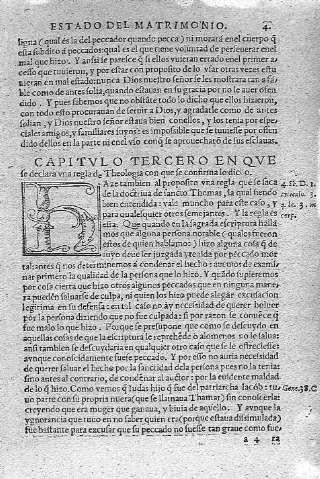 ESTADO DEL MATRIMONIO. 4.
ligna (qual es la del peccador quando pecca) ni morará en el cuerpo q̃
esta subdito a peccados: qual es el que tiene voluntad de perseuerar en el
mal que hizo. Y ansi se paresce q̃ si ellos vuieran errado en el primer a-
cesso que tuuieron, y por estar con proposito de lo vsar otras vezes estu
uieran en mal estado: nunca Dios nuestro señor se les mostrara tan a
ble como de antes solia, quando estauan en su gracia por no le auer ofen
dido. Y pues sabemos que no obstāte todo lo dicho que ellos hizieron,
con todo esto procurauan de seruir a Dios, y agradarle como de antes
solian, y Dios nuestro señor estaua bien con ellos, y los tenia por espe-
ciales amigos, y familiares suyos: es impossible que se tuuiesse por ofen
dido dellos en la parte ni en el vio con q̃ se aprouecható de sus esclauas.
CAPITVLO TERCERO EN QVE
se declara vna regla d̃ Theologia con que se confirma lo dicho.
HAze tambien al proposito vna regla que se saca
de la doctrina de sancto Thomas, la qual siendo
bien entendida: vale mucho para este caso, y
para qualesquier otros semejantes. Y la regla es
esta. Que quando en la sagrada escriptura halla
mos que alguna persona notable (qual es fueron
estos de quien hablamos) hizo alguna cosa q̃ de
suyo deue ser juzgada y tenida por peccado mor
tal: antes q̃ nos determinemos a condenar el hecho: deuemos de exami-
nar primero la qualidad de la persona que lo hizo. Y quādo supieremos
por cosa cierta que hizo otros algunos peccados que en ninguna mane
ra puedē saluarse de culpa, ni quien los hizo puede alegar excusacion
legitima en su defensa: en tal caso no ay necesidad de querer boluer
por la persona diziendo que no fue culpada: si por razon se conuēce q̃
fue malo lo que hizo. Porque se presupone que como se descuydo en
aquellas cosas de que la escriptura le reprehēde o al omenos no le salua:
ansi tambien se descuydaria en qualquier otro caso que se le ofresciesse:
aunque conoscidamente fuesse peccado. Y por esso no auria necesidad
de querer saluar el hecho por la sanctidad de la persona pues no la tenia:
sino antes al contrario, de condēnar al auctor: por la euidente maldad
de lo q̃ hizo. Como vemos q̃ Iudas hijo q̃ fue del patriarcha Iacob: tu
uo parte con su propria nuera (que se llamaua Thamar) sin conoscerla:
creyendo que era muger que ganaua, y biuia de aquello. Y aunque la
ygnorancia que tuuo en no saber quien era (porque estaua dissimulada)
fue bastante para excusar que su peccado no fuesse tan graue como fue
a 4 ra
Gene. 38. C